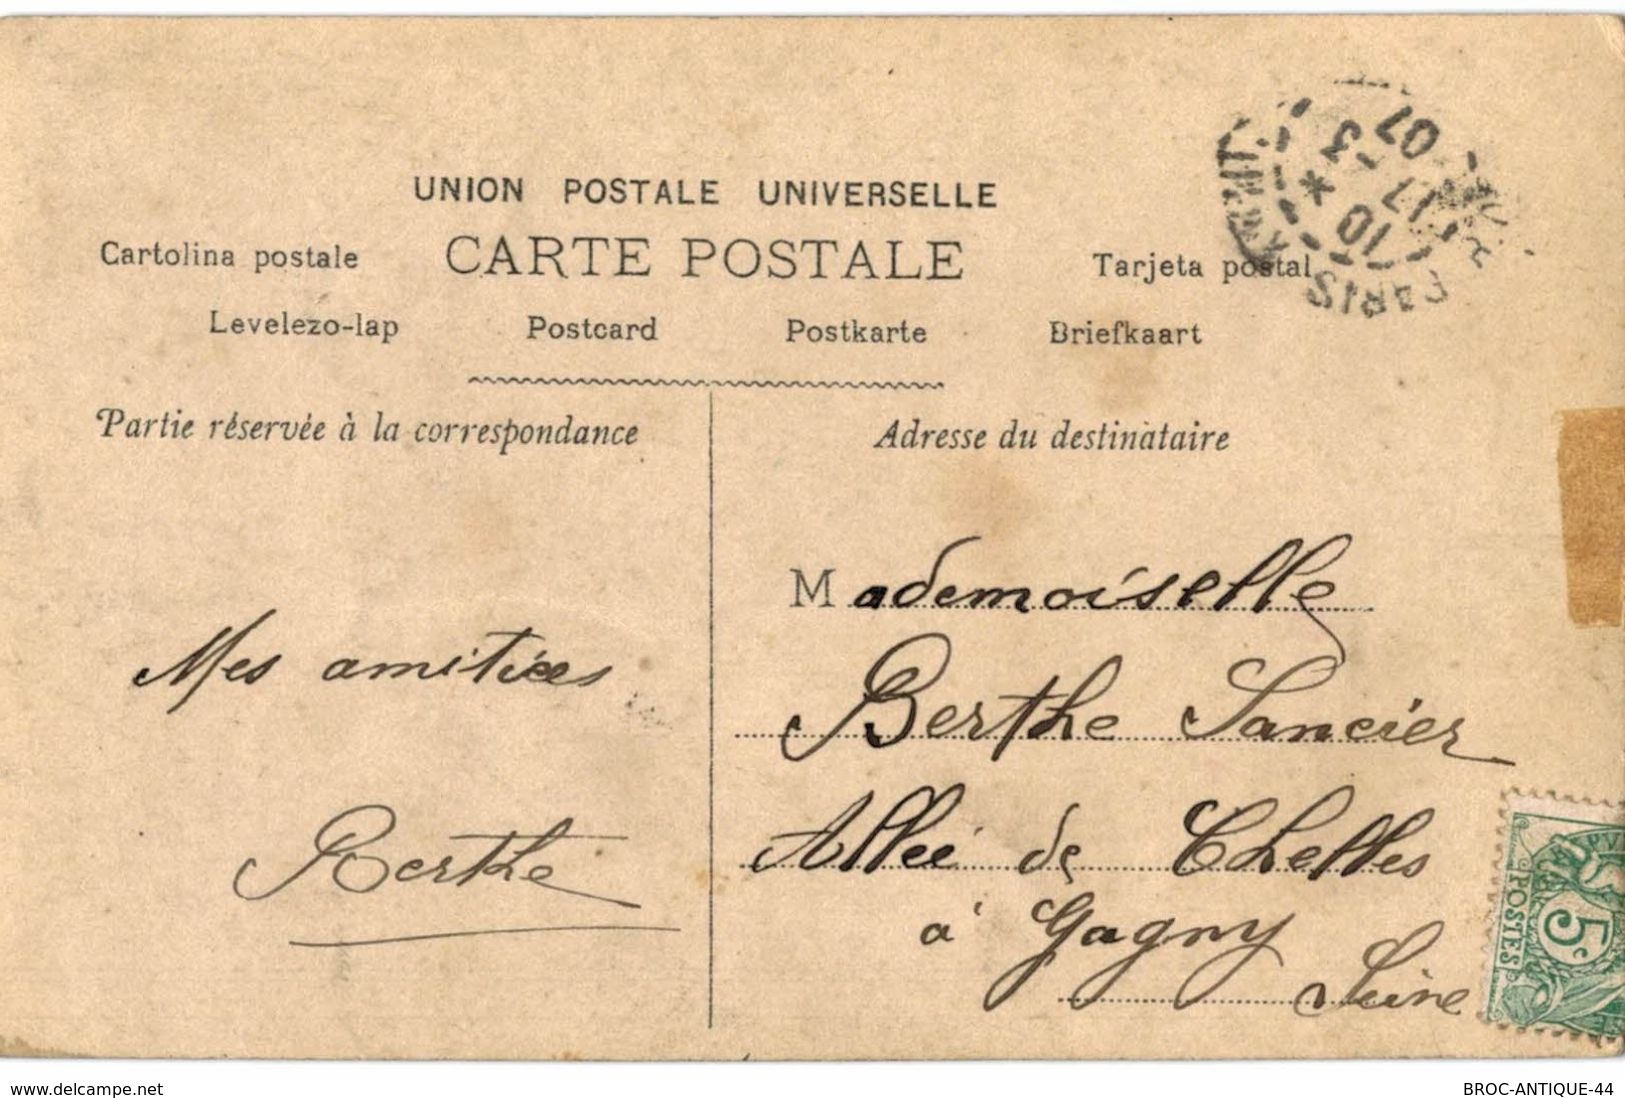 UNION POSTALE UNIVERSELLE
Cartolina postale CARTE POSTALE Tarjeta postal
Levelezo-lap Postcard Postkarte Briefkaart
Partie réservée à la correspondance
Mes amitiées
Berthe
Adresse du destinataire
Mademoiselle
Berthe Sancier
Allée de Chelles
à Gagny
Seine
PARIS
10 *
17 - 3
07
5c
POSTES
www.delcampe.net
BROC-ANTIQUE-44